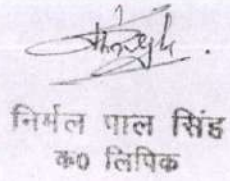 निर्मल पाल सिंह
क0 लिपिक